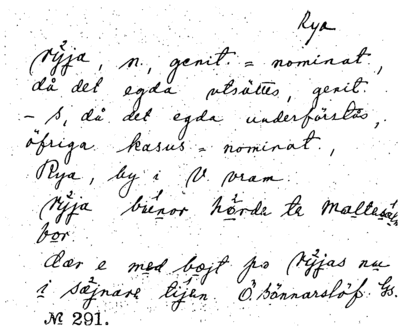 Rya
rÿja, n., genit. = nominat.,
då det egda utsättes, genit.
- s, då det egda underförstås,
öfriga kasus = nominat.,
Rya, by i V. Vram.
rÿja búnor hö̀rde te malte
bor
dær e med bojt po rÿjas nu
i sæjnare tíjen. Ö. Sönnarslöf. Gs.
№ 291.